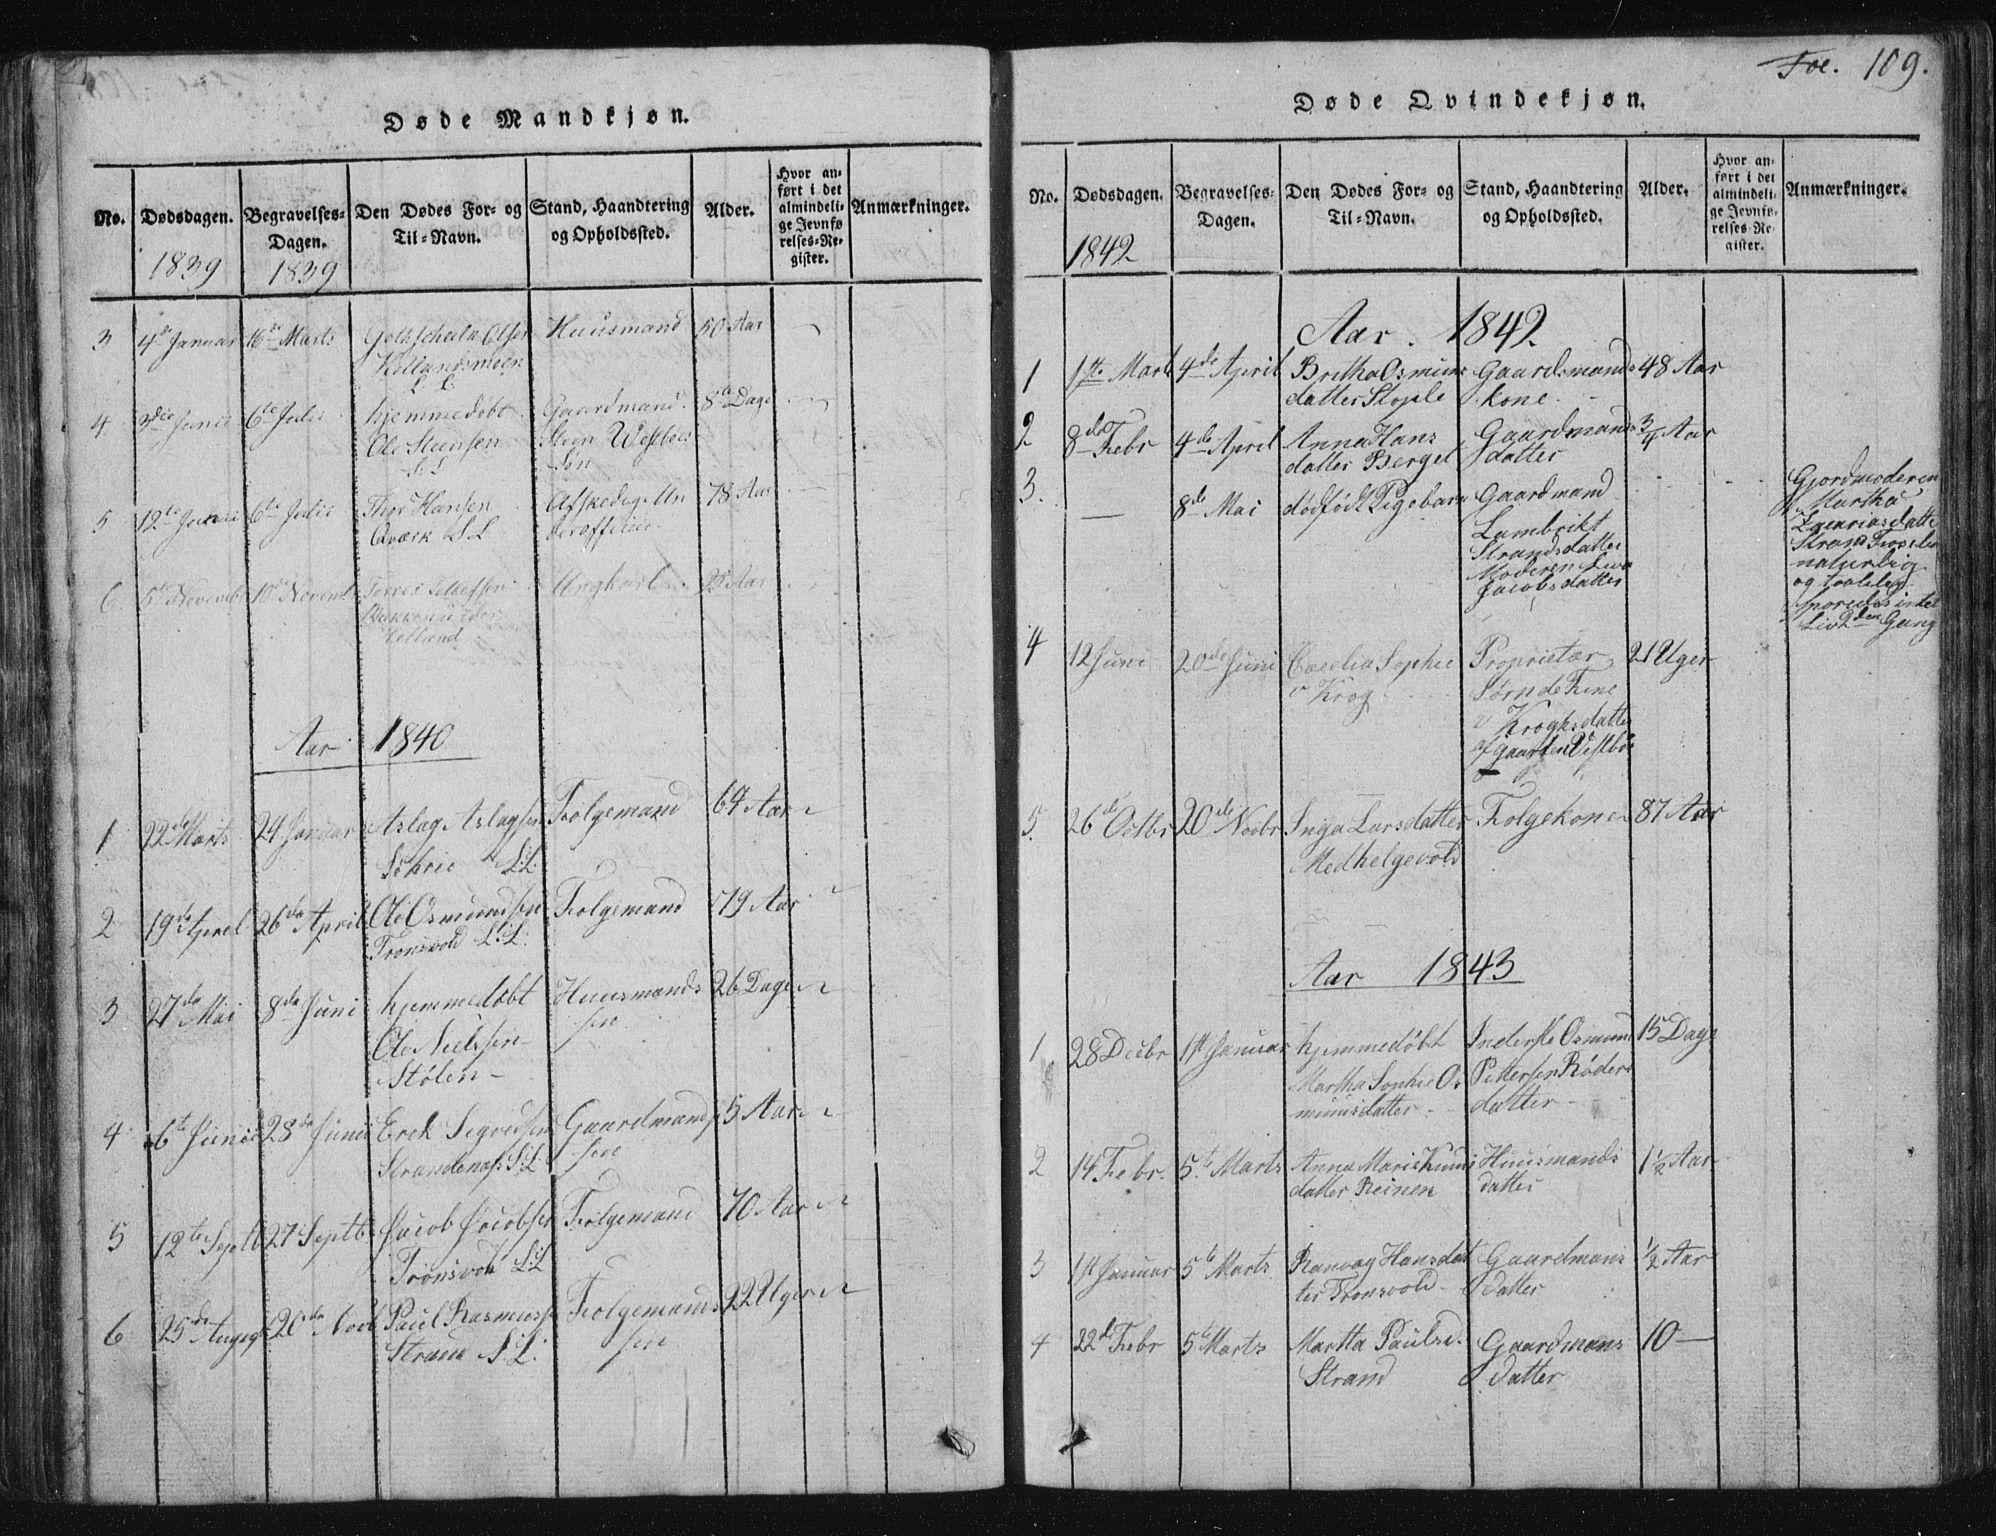 Døde Mandkjøn.
No. Dødsdagen. Begravelses-Dagen. Den Dødes For- og Til-Navn. Stand, Haandtering og Opholdssted. Alder. Hvor anført i det almindelige Jevnførelses-Register. Anmærkninger.
1839 1839
3 4de Januar 16de Marts Olsen Huusmand 50 Aar
L L
4 3die Junii 6te Julii hjemmedøbt Gaardmand 8te Dage
Ole Steensen Steen Westboes
S L Søn
5 12te Junii 6te Julii Thor Hansen Afskediget Un 78 Aar
Qværk S L derofficier
6 5te Novembr 10de Novembr Ungkarl 28 Aar
Aar 1840
1 22de Marts 24 Januar Aslag Aslagsen Folgemand 64 Aar
L:L
2 19de Aprel 26de April Ole Osmundsen Folgemand 79 Aar
Tronsvold L:L:
3 27de Mai 8de Juni hjemmedøbt Huusmands 26 Dage
Ole Nielssen søn
Stølen
4 6te Junii 28de Junii Erek Segvedsen Gaardmands 5 Aar
Strandenæs S:L søn
5 12te Septb 27 Septb Jacob Jacobsen Folgemand 70 Aar
Tronsvold L:L
6 25de August 20de Novb Paul Rasmussen Folgemands 22 Uger
Strand S:L: søn
Foe. 109.
Døde Qvindekjøn.
No. Dødsdagen. Begravelses-Dagen. Den Dødes For- og Til-Navn. Stand, Haandtering og Opholdssted. Alder. Hvor anført i det almindelige Jevnførelses-Register. Anmærkninger.
1842
Aar. 1842
1 1ste Marts 4de April Britha Osmuns Gaardsmands 48 Aar
datter Stople kone
2 8de Febr 4de April Anna Hans Gaardmands 3/4 Aar
datter Berget datter
3. — 8de Mai dødfødt Pigebarn Gaardmand Gjordmoderen
Lambrikt Martha
Strands datter
Moderen Siva Strand
Jacobsdatter naturlig
og
2den Gang
4 12 Juni 20de Juni Cecelia Sophie Proprietær 21 Uger
v Krog Sørn de Fine
v Kroghs datter
af gaarden Vestbø
5. 26de Octbr 20de Novbr Inga Larsdatter Folgekone 87 Aar
Medhelgevold
Aar 1843
1 28 Decbr 1st Januar hjemmedøbt Inderste Osmund 15 Dage
Martha Sophie Os Pettersen Røders
munsdatter datter
2 14 Febr. 5te Marts Anna Marie Knuds Huusmands 1 1/2 Aar
datter Reinen datter
3 1st Januar 5te Marts Ranvag Hansdat Gaardmans 1/2 Aar
ter Tronsvold datter
4 22de Febr 5te Marts Martha Paulsd. Gaardmans 10 —
Strand datter